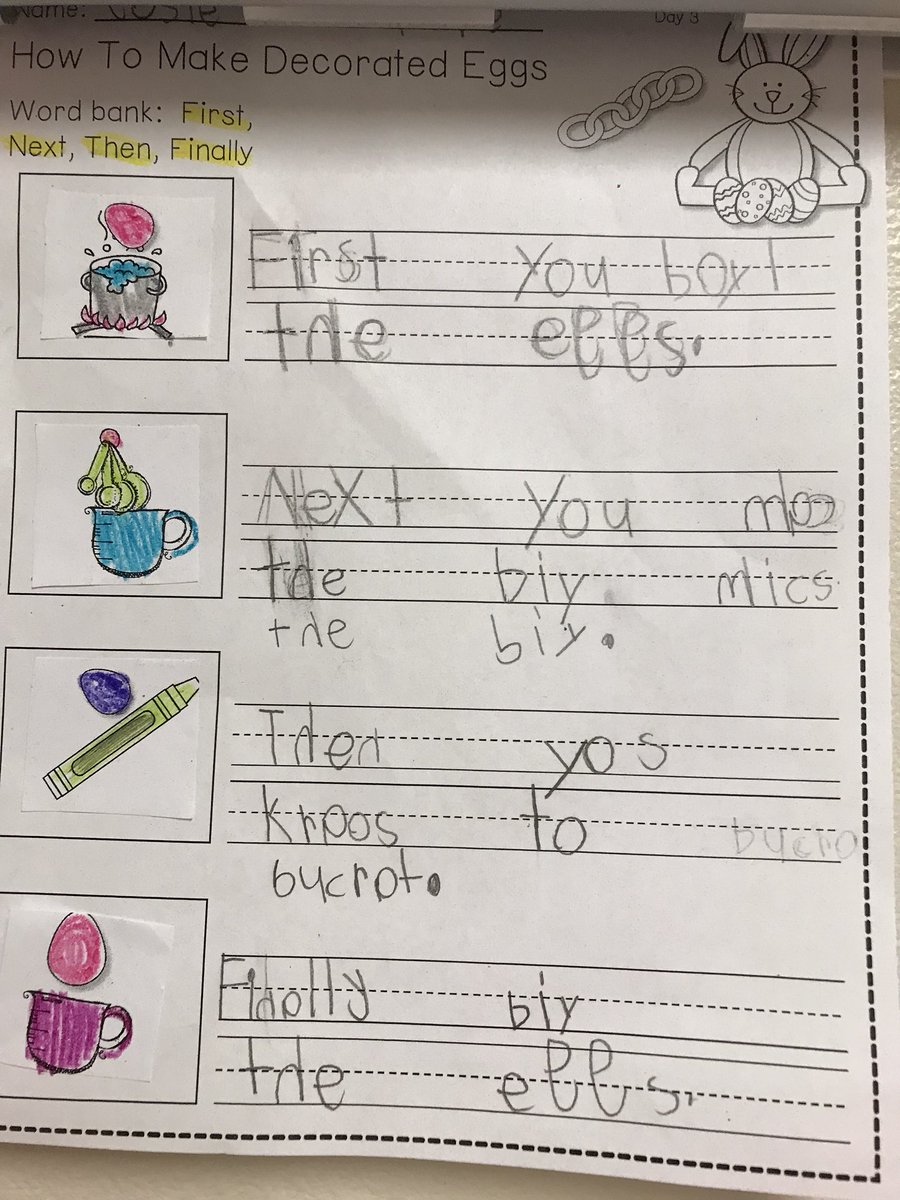 Name: Josie
Day 3
How To Make Decorated Eggs
Word bank: First,
Next, Then, Finally
First you boyl
the eggs.
Next you
the biy mics
the biy.
Then yos
Kroos to bucro
bucrot.
Finolly biy
the eggs.